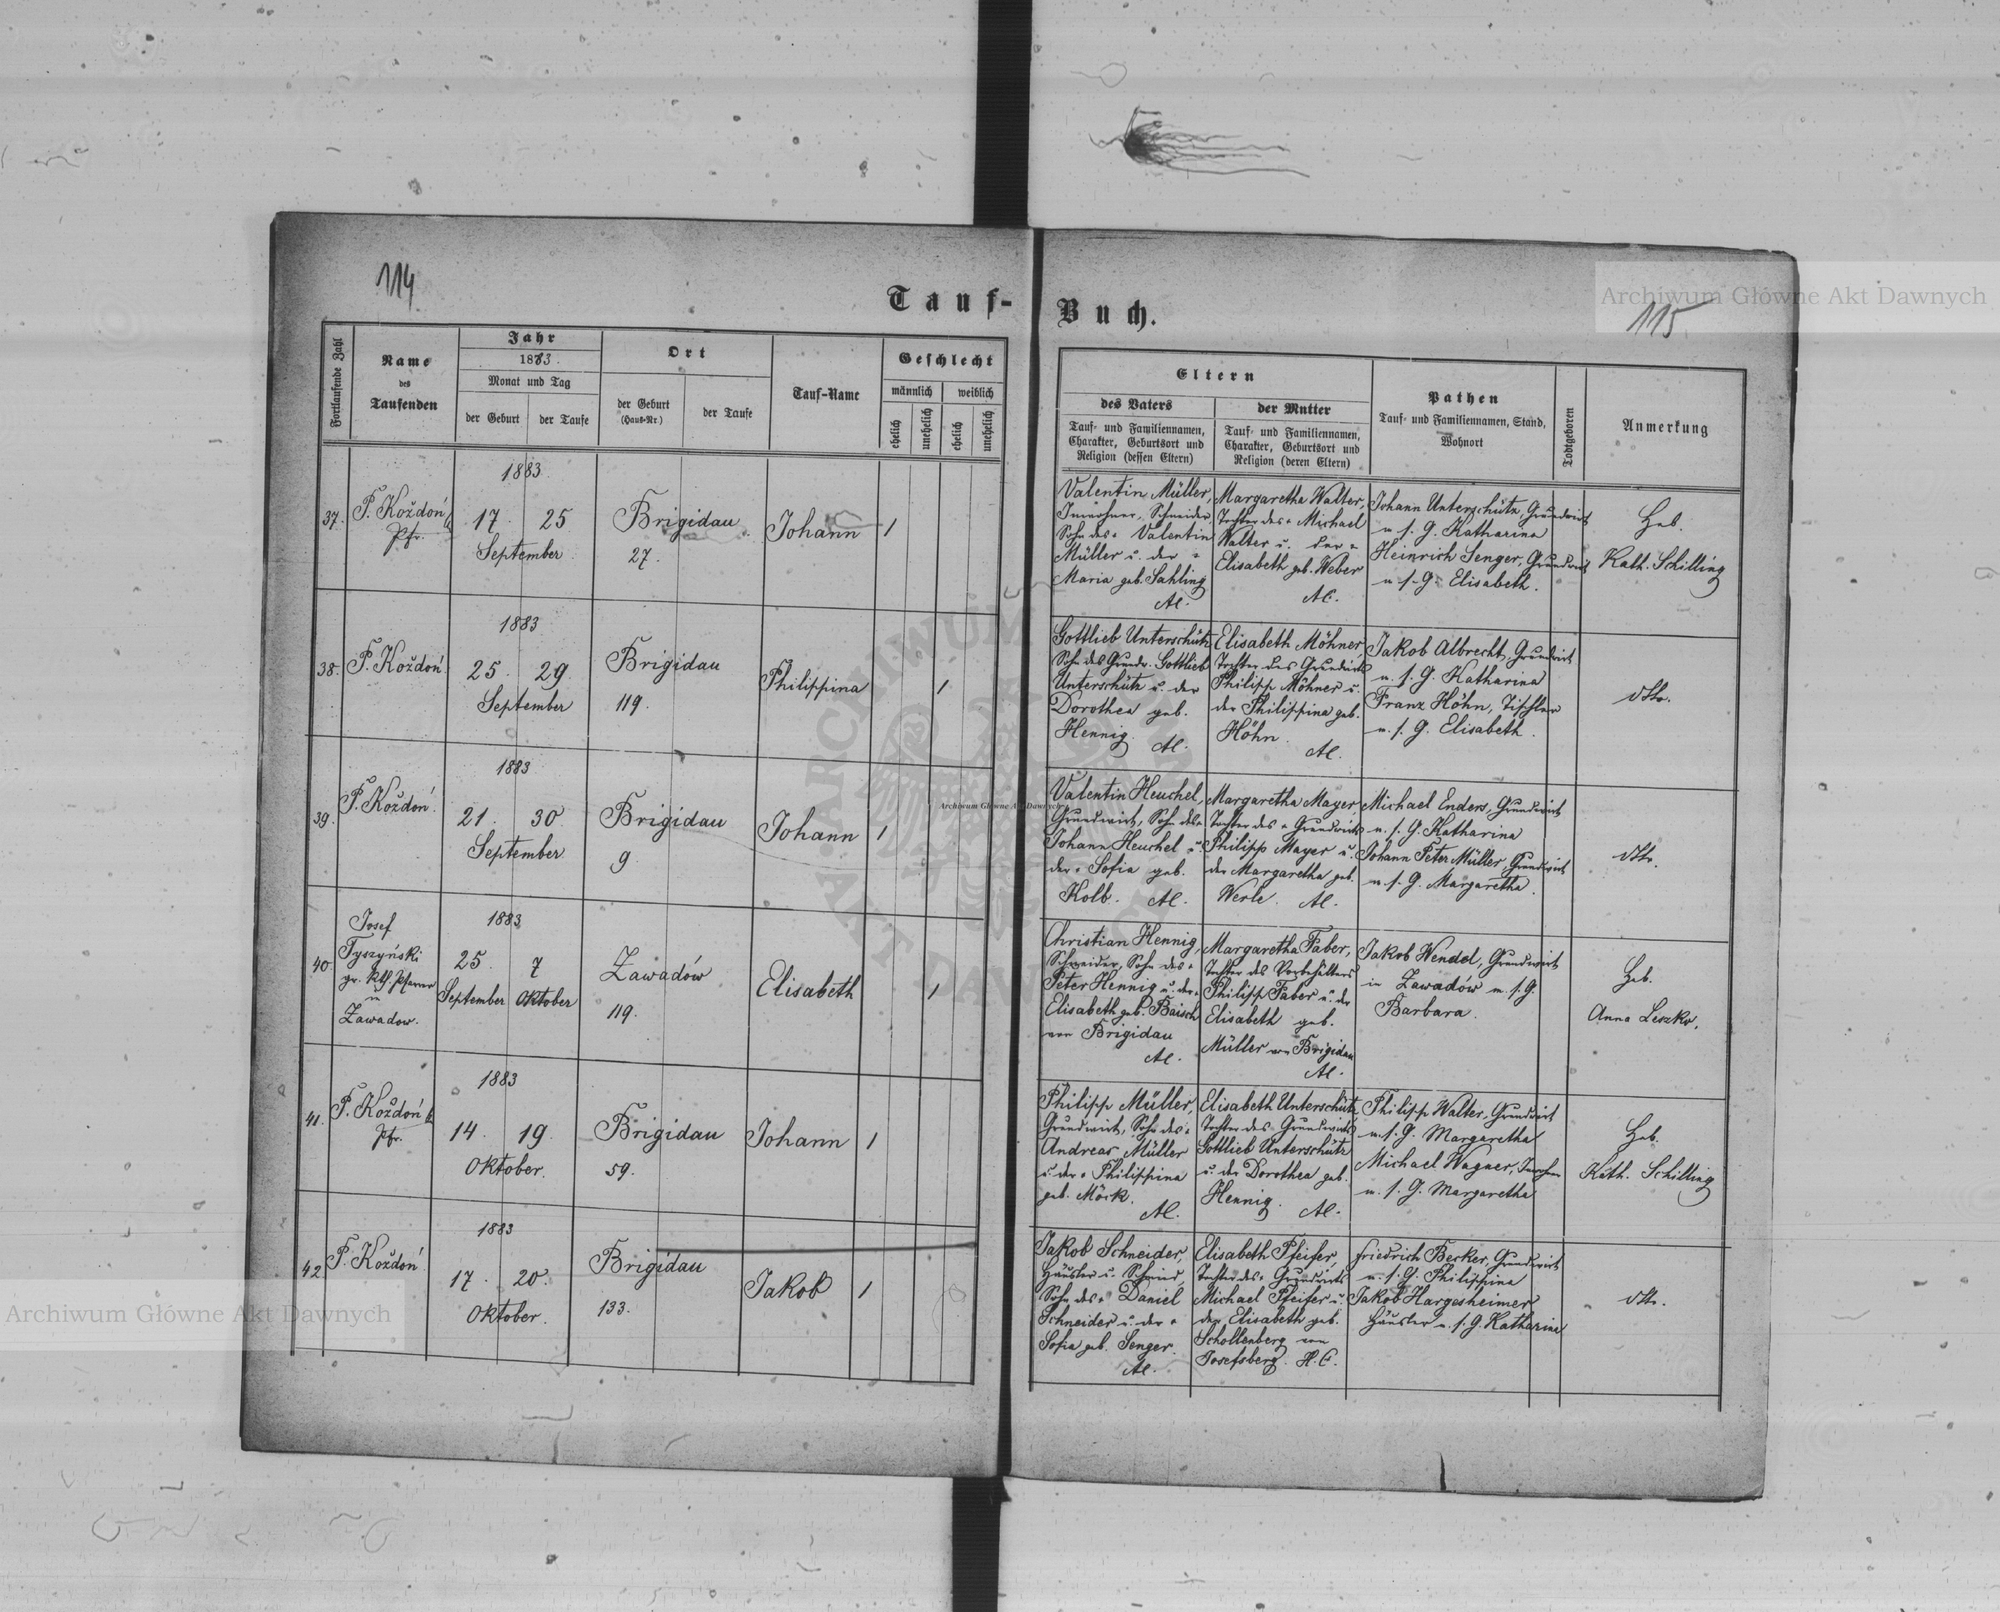 114
Tauf-
Buch.
115
Archiwum Główne Akt Dawnych
Fortlaufende Zahl
Name
des
Taufenden
Jahr
1883.
Monat und Tag
der Geburt
der Taufe
Ort
der Geburt
(Haus-Nr.)
der Taufe
Tauf-Name
Geschlecht
männlich
weiblich
ehelich
unehelich
ehelich
unehelich
Eltern
des Vaters
Tauf- und Familiennamen,
Charakter, Geburtsort und
Religion (dessen Eltern)
der Mutter
Tauf- und Familiennamen,
Charakter, Geburtsort und
Religion (deren Eltern)
Pathen
Tauf- und Familiennamen, Stand,
Wohnort
Todtgeboren
Anmerkung
37.
P. Koždoń
Pfr.
1883
17. 25
September
Brigidau
27.
Johann
1
Valentin Müller,
Inwohner, Schneider
Sohn des + Valentin
Müller u. der +
Maria geb. Sahling
AC.
Margaretha Walter,
Tochter des + Michael
Walter u. der +
Elisabeth geb. Weber
AC.
Johann Unterschütz, Grundwirt
u. s. G. Katharina
Heinrich Senger, Grundwirt
u. s. G. Elisabeth.
Heb.
Kath. Schilling
38.
P. Koždoń
1883
25. 29
September
Brigidau
119.
Philippina
1
Gottlieb Unterschütz
Sohn des Grundw. Gottlieb
Unterschütz u. der
Dorothea geb.
Hennig. AC.
Elisabeth Möhner,
Tochter des Grundwirts
Philipp Möhner u.
der Philippina geb.
Höhn.
AC.
Jakob Albrecht, Grundwirt
u. s. G. Katharina
Franz Höhn, Tischler
u. s. G. Elisabeth.
dtto.
39.
P. Koždoń
1883
21. 30
September
Brigidau
9
Johann
1
Valentin Heuchel,
Grundwirt, Sohn des +
Johann Heuchel u.
der + Sofia geb.
Kolb. AC.
Margaretha Mayer
Tochter des + Grundwirts
Philipp Mayer u.
der Margaretha geb.
Werle. AC.
Michael Enders, Grundwirt
u. s. G. Katharina
Johann Peter Müller, Grundwirt
u. s. G. Margaretha.
dtto.
Archiwum Główne Akt Dawnych
40
Josef
Tyszyński
gr. kth. Pfarrer
in
Zawadow.
1883
25. 7
September Oktober
Zawadów
119.
Elisabeth
1
Christian Hennig,
Schneider, Sohn des +
Peter Hennig u. der +
Elisabeth geb. Baisch
von Brigidau
AC.
Margaretha Faber,
Tochter des Vorbehälters
Philipp Faber u. der
Elisabeth geb.
Müller von Brigidau
AC.
Jakob Wendel, Grundwirt
in Zawadów u. s. G.
Barbara.
Heb.
Anna Leszko.
41.
P. Koždoń
Pfr.
1883
14. 19.
Oktober.
Brigidau
59.
Johann
1
Philipp Müller,
Grundwirt, Sohn des +
Andreas Müller
u. der + Philippina
geb. Möck.
AC.
Elisabeth Unterschütz,
Tochter des Grundwirts
Gottlieb Unterschütz
u. der Dorothea geb.
Hennig. AC.
Philipp Walter, Grundwirt
u. s. G. Margaretha
Michael Wagner,
u. s. G. Margaretha
Heb.
Kath. Schilling
42
P. Koždoń
1883
17. 20.
Oktober.
Brigidau
133.
Jakob
1
Jakob Schneider,
Häusler u. Schmied,
Sohn des + Daniel
Schneider u. der +
Sofia geb. Senger.
AC.
Elisabeth Pfeifer,
Tochter des + Grundwirts
Michael Pfeifer u.
der Elisabeth geb.
Schollenberg von
Josefsberg. H.C.
Friedrich Becker, Grundwirt
u. s. G. Philippina
Jakob Hargesheimer
Häusler u. s. G. Katharina
dtto.
Archiwum Główne Akt Dawnych